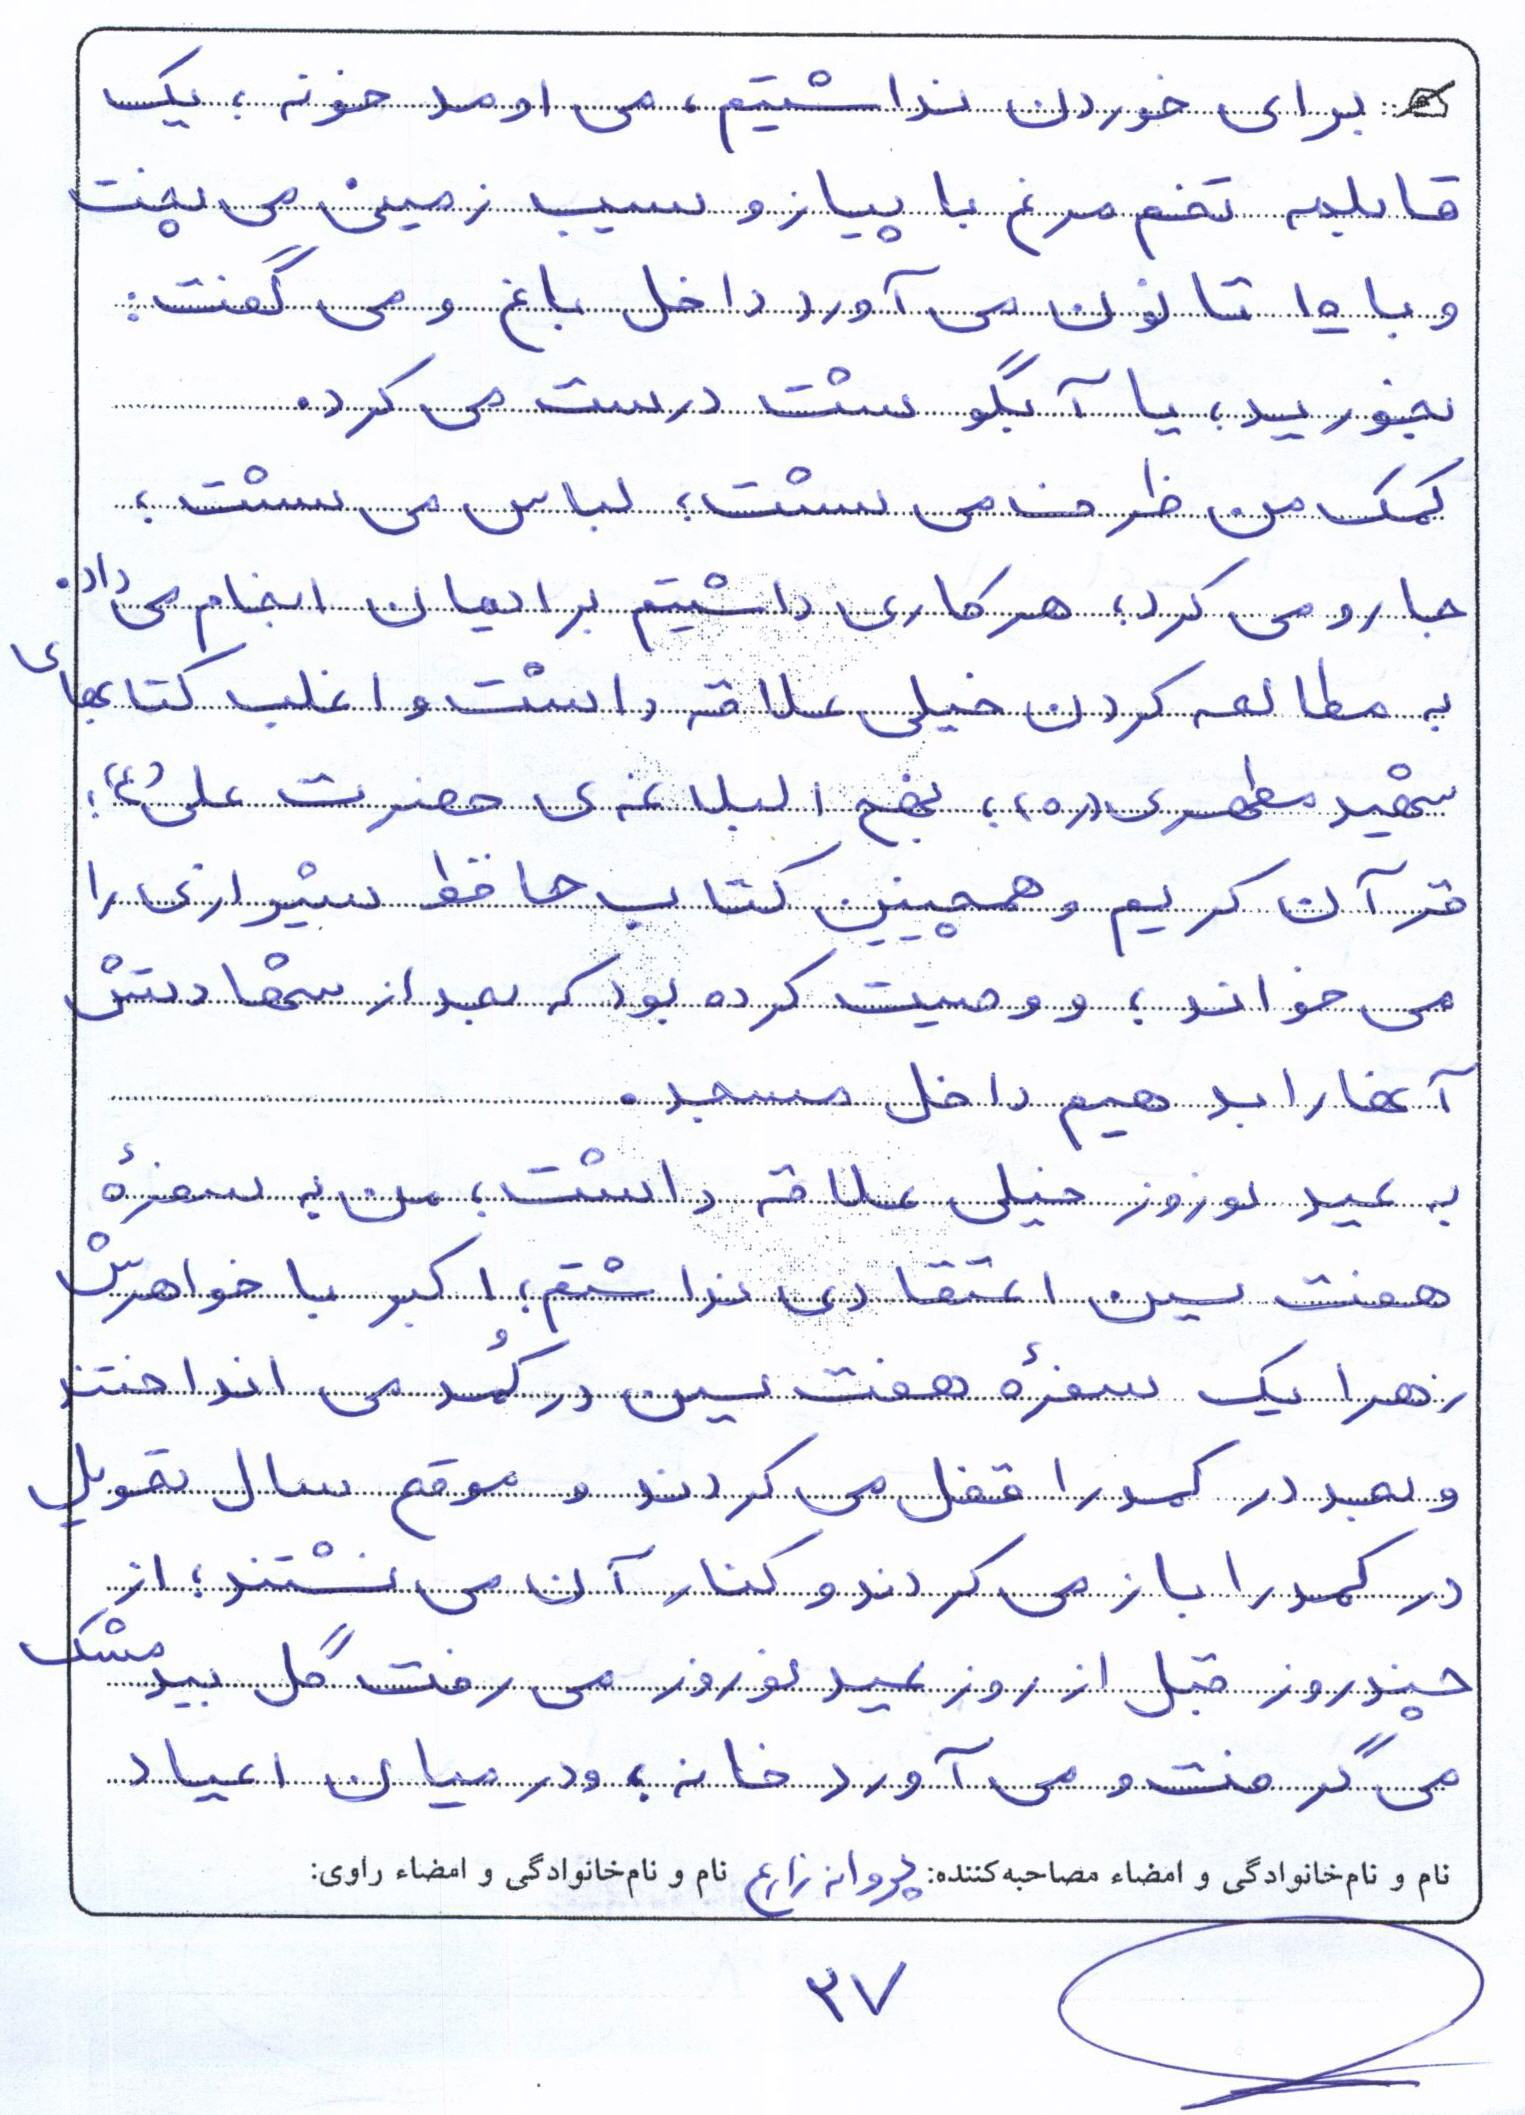 برای خوردن نداشتیم، می اومد خونه؛ یک
قابلمه تخم مرغ با پیاز و سیب زمینی می پخت
و با ۱۵ تا نون می آورد داخل باغ و می گفت:
بخورید؛ یا آبگوشت درست می کرد.
کمک من ظرف می شست؛ لباس می شست؛
جارو می کرد؛ هر کاری داشتیم برایمان انجام می داد.
به مطالعه کردن خیلی علاقه داشت و اغلب کتابهای
شهید مطهری (ره)؛ نهج البلاغه ی حضرت علی (ع)؛
قرآن کریم و همچنین کتاب حافظ شیرازی را
می خواند؛ و وصیت کرده بود که بعد از شهادتش
آنها را بدهیم داخل مسجد.
به عید نوروز خیلی علاقه داشت؛ من به سفرهٔ
هفت سین اعتقادی نداشتم؛ اکبر با خواهرش
زهرا یک سفرهٔ هفت سین در کُمد می انداختند
و بعد در کمد را قفل می کردند و موقع سال تحویل
در کمد را باز می کردند و کنار آن می نشستند؛ از
چند روز قبل از روز عید نوروز می رفت گل بید مشک
می گرفت و می آورد خانه؛ و در میان اعیاد
نام و نام‌خانوادگی و امضاء مصاحبه‌کننده: پروانه زارع نام و نام‌خانوادگی و امضاء راوی:
۳۷